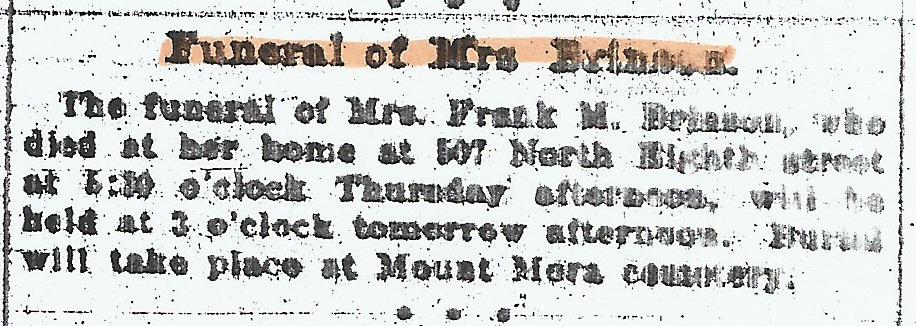 Funeral of Mrs Brinson.
The funeral of Mrs. Frank M. Brinson, who
died at her home at 507 North Eighth street
at o'clock Thursday afternoon, will be
held at 3 o'clock tomorrow afternoon. Burial
will take place at Mount Mora cemetery.